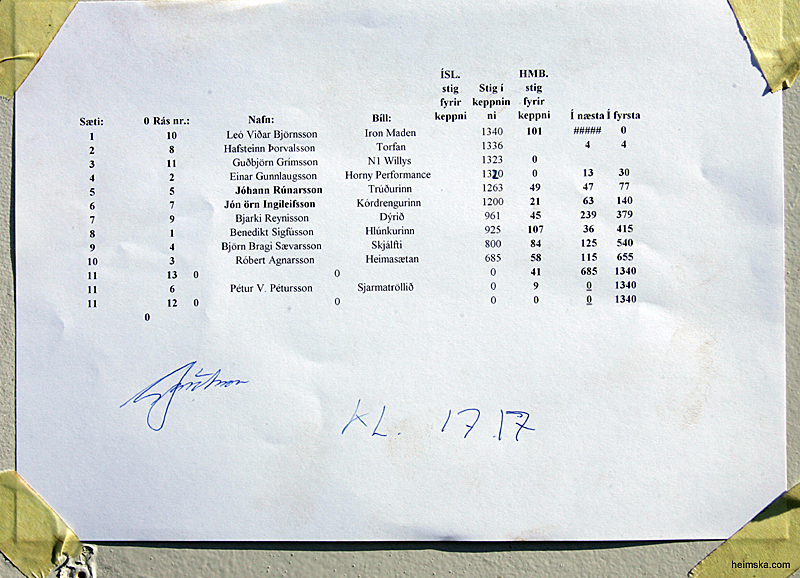 ÍSL. HMB.
stig Stig í stig
fyrir keppnin fyrir
Sæti: 0 Rás nr.: Nafn: Bíll: keppni ni keppni Í næsta Í fyrsta
1 10 Leó Viðar Björnsson Iron Maden 1340 101 ##### 0
2 8 Hafsteinn Þorvalsson Torfan 1336 4 4
3 11 Guðbjörn Grimsson N1 Willys 1323 0
4 2 Einar Gunnlaugsson Horny Performance 1320 0 13 30
5 5 Jóhann Rúnarsson Trúðurinn 1263 49 47 77
6 7 Jón örn Ingileifsson Kórdrengurinn 1200 21 63 140
7 9 Bjarki Reynisson Dýrið 961 45 239 379
8 1 Benedikt Sigfússon Hlúnkurinn 925 107 36 415
9 4 Björn Bragi Sævarsson Skjálfti 800 84 125 540
10 3 Róbert Agnarsson Heimasætan 685 58 115 655
11 13 0 0 0 41 685 1340
11 6 Pétur V. Pétursson Sjarmatröllið 0 9 0 1340
11 12 0 0 0 0 0 1340
0
KL. 17 17
heimska.com